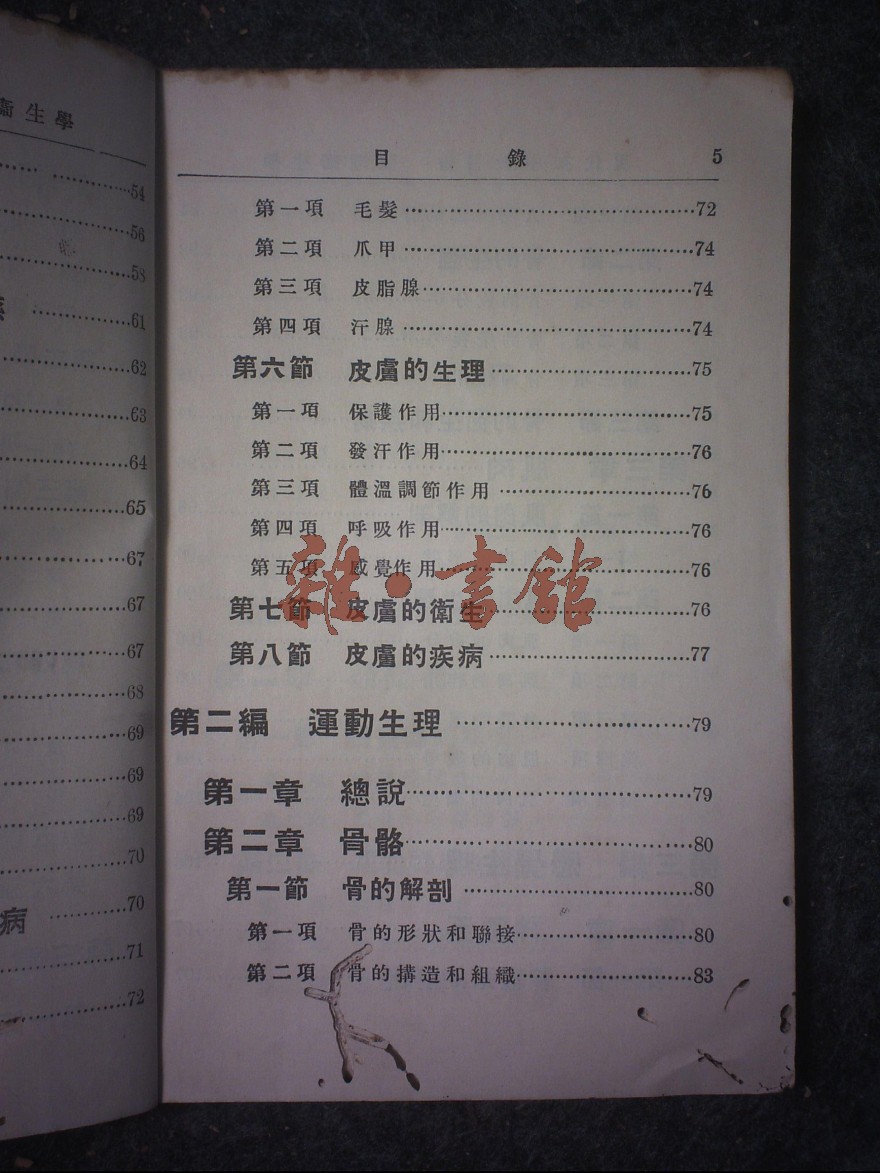 衞生學
54
56
58
61
62
63
64
65
67
67
67
68
69
69
69
70
病 70
71
72
目 錄 5
第一項 毛髮 72
第二項 爪甲 74
第三項 皮脂腺 74
第四項 汗腺 74
第六節 皮膚的生理 75
第一項 保護作用 75
第二項 發汗作用 76
第三項 體溫調節作用 76
第四項 呼吸作用 76
第五項 感覺作用 76
第七節 皮膚的衛生 76
第八節 皮膚的疾病 77
第二編 運動生理 79
第一章 總說 79
第二章 骨骼 80
第一節 骨的解剖 80
第一項 骨的形狀和聯接 80
第二項 骨的構造和組織 83
雜·書館